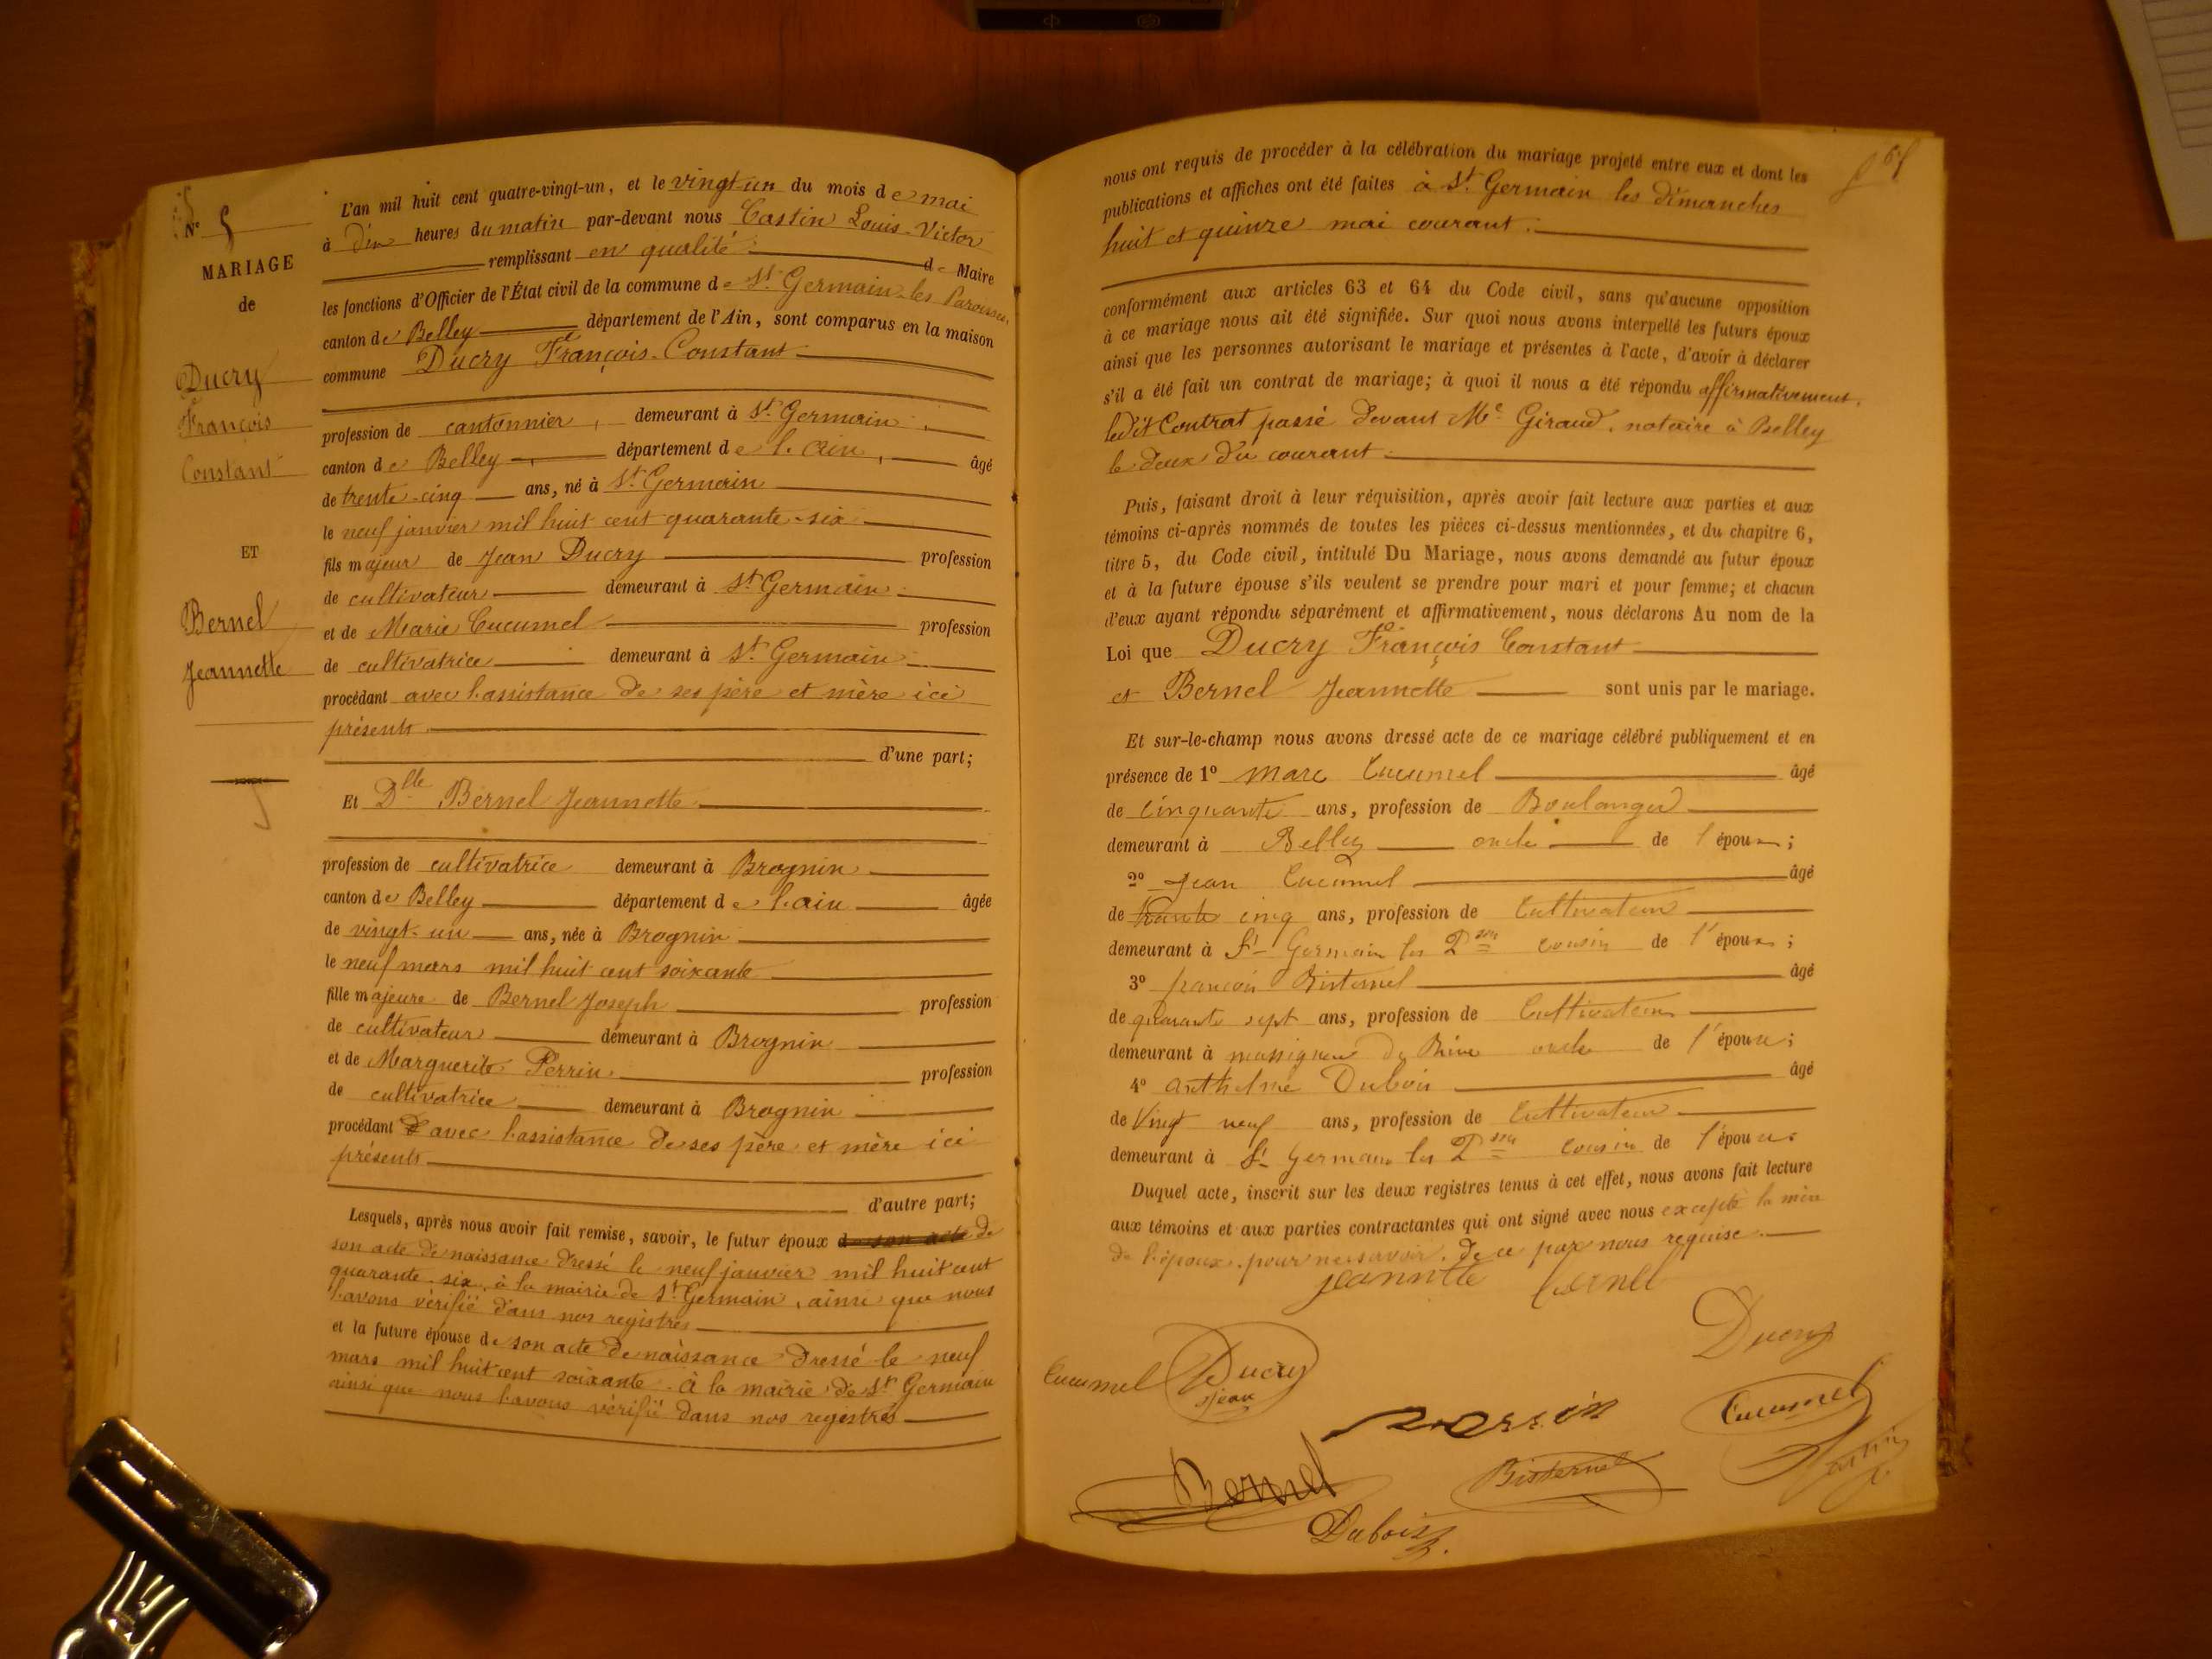 N° 5
MARIAGE
de
Ducry
François
Constant
ET
Bernel
Jeannette
L'an mil huit cent quatre-vingt-un, et le vingt-un du mois de mai
à dix heures du matin par-devant nous Castin Louis-Victor
remplissant en qualité de Maire
les fonctions d'Officier de l'État civil de la commune de St Germain-les-Paroisses,
canton de Belley département de l'Ain, sont comparus en la maison
commune Ducry François-Constant
profession de cantonnier, demeurant à St Germain,
canton de Belley, département de l'Ain, âgé
de trente-cinq ans, né à St Germain
le neuf janvier mil huit cent quarante-six
fils majeur de Jean Ducry profession
de cultivateur demeurant à St Germain
et de Marie Cucumel profession
de cultivatrice demeurant à St Germain
procédant avec l'assistance de ses père et mère ici
présents
d'une part;
Et Dlle Bernel Jeannette
profession de cultivatrice demeurant à Brognin
canton de Belley département de l'ain âgée
de vingt-un ans, née à Brognin
le neuf mars mil huit cent soixante
fille majeure de Bernel Joseph profession
de cultivateur demeurant à Brognin
et de Marguerite Perrin profession
de cultivatrice demeurant à Brognin
procédant avec l'assistance de ses père et mère ici
présents
d'autre part;
Lesquels, après nous avoir fait remise, savoir, le futur époux de son acte de
son acte de naissance dressé le neuf janvier mil huit cent
quarante-six, à la mairie de St Germain, ainsi que nous
l'avons vérifié dans nos registres
et la future épouse de son acte de naissance dressé le neuf
mars mil huit cent soixante à la mairie de St Germain
ainsi que nous l'avons vérifié dans nos registres
nous ont requis de procéder à la célébration du mariage projeté entre eux et dont les
publications et affiches ont été faites à St Germain les dimanches
huit et quinze mai courant.
conformément aux articles 63 et 64 du Code civil, sans qu'aucune opposition
à ce mariage nous ait été signifiée. Sur quoi nous avons interpellé les futurs époux
ainsi que les personnes autorisant le mariage et présentes à l'acte, d'avoir à déclarer
s'il a été fait un contrat de mariage; à quoi il nous a été répondu affirmativement,
ledit Contrat passé devant Me Giraud, notaire à Belley
le deux du courant
Puis, faisant droit à leur réquisition, après avoir fait lecture aux parties et aux
témoins ci-après nommés de toutes les pièces ci-dessus mentionnées, et du chapitre 6,
titre 5, du Code civil, intitulé Du Mariage, nous avons demandé au futur époux
et à la future épouse s'ils veulent se prendre pour mari et pour femme; et chacun
d'eux ayant répondu séparément et affirmativement, nous déclarons Au nom de la
Loi que Ducry François Constant
et Bernel Jeannette sont unis par le mariage.
Et sur-le-champ nous avons dressé acte de ce mariage célébré publiquement et en
présence de 1° Marc Cucumel âgé
de cinquante ans, profession de Boulanger
demeurant à Belley oncle de l'époux;
2° Jean Cucumel âgé
de trente cinq ans, profession de Cultivateur
demeurant à St Germain les Pses cousin de l'époux;
3° françois Bisternel âgé
de quarante sept ans, profession de Cultivateur
demeurant à massignieu de Rive oncle de l'épouse;
4° anthelme Dubois âgé
de Vingt neuf ans, profession de Cultivateur
demeurant à St Germain les Pses cousin de l'épouse
Duquel acte, inscrit sur les deux registres tenus à cet effet, nous avons fait lecture
aux témoins et aux parties contractantes qui ont signé avec nous excepté la mère
de l'époux pour ne savoir, de ce par nous requise.
jeannette bernel
Ducry
Cucumel Ducry
jean
Cucumel
perrin
Bernel
Bisternel
Castin
Dubois